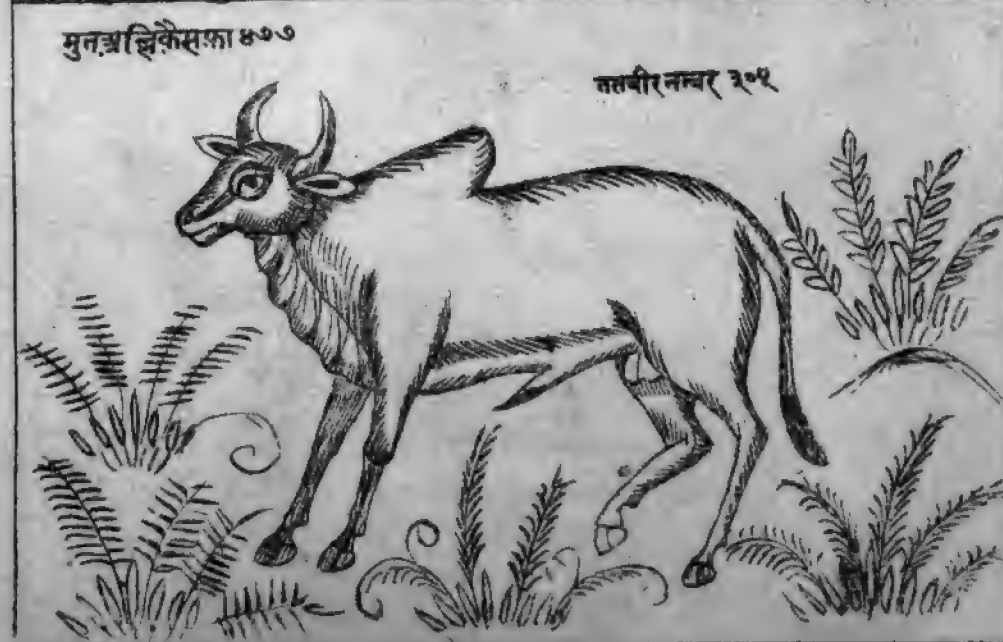 मुतअ़ल्लिक़ैसफ़ा ४७७
तसबीर नम्बर ३०५